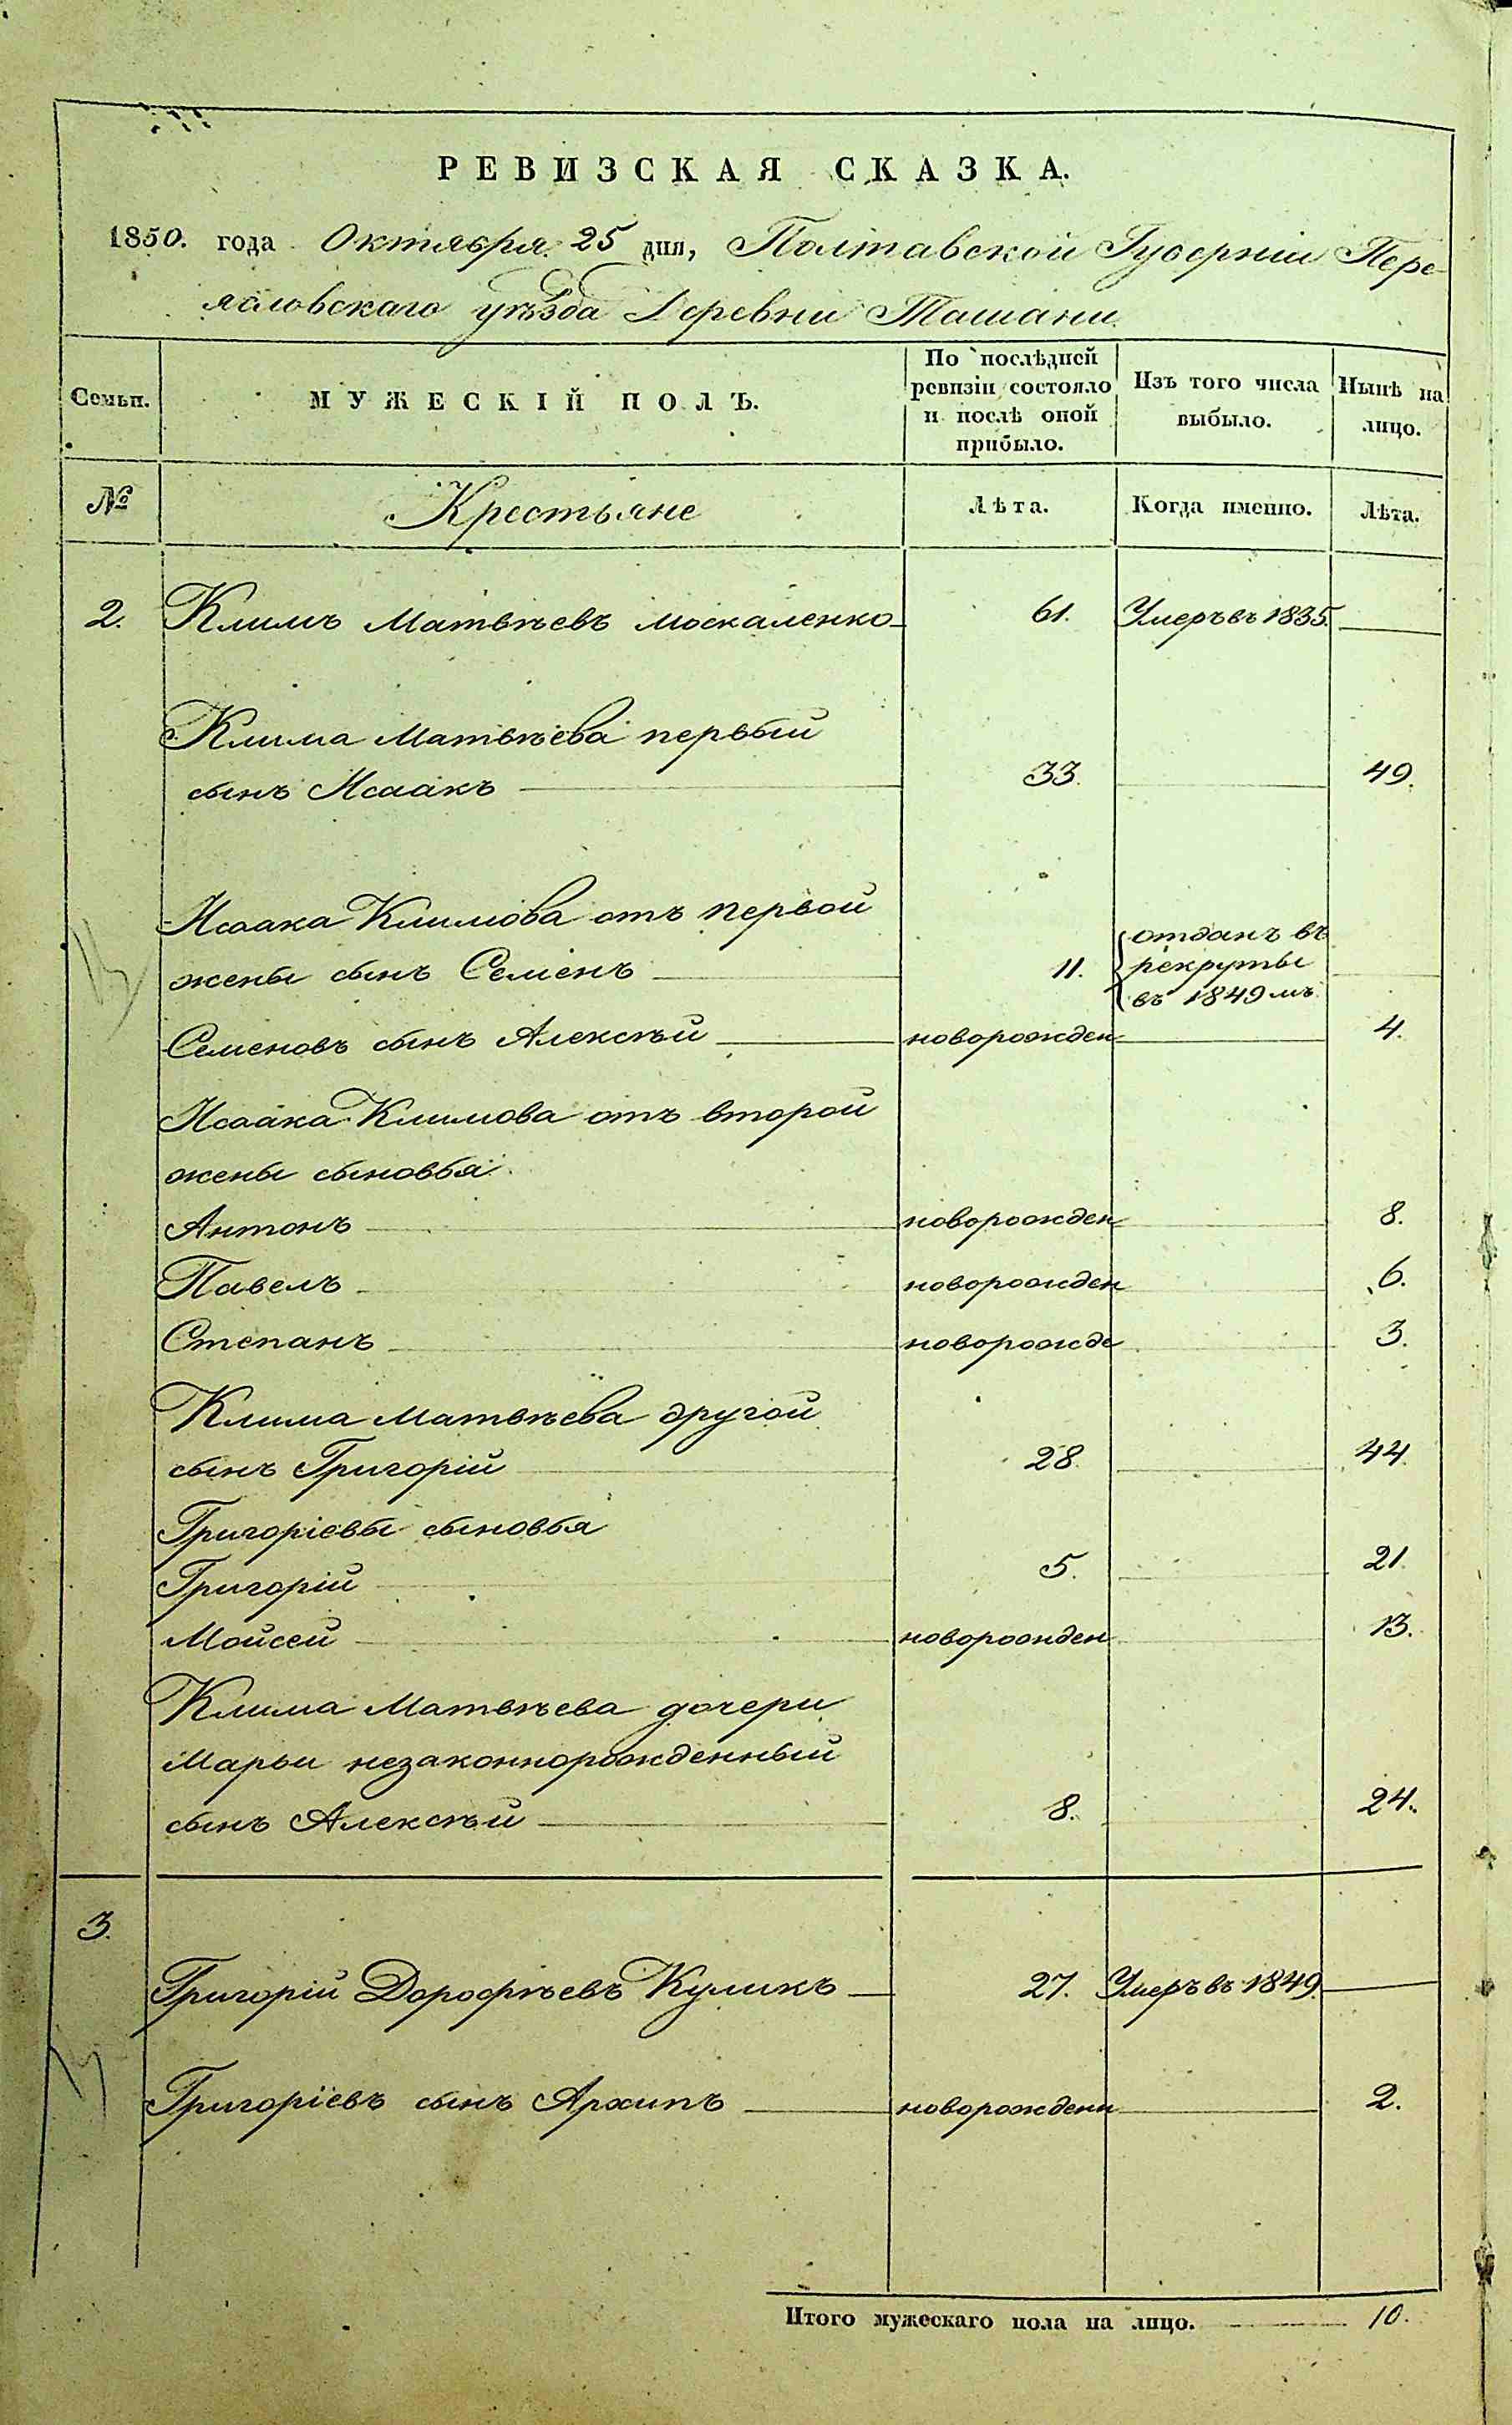 РЕВИЗСКАЯ СКАЗКА.
1850. года Октября 25 дня, Полтавской Губерніи Пере-
яславскаго уѣзда Деревни Ташани
Семьи.
МУЖЕСКІЙ ПОЛЪ.
По послѣдней ревизіи состояло и послѣ оной прибыло.
Изъ того числа выбыло.
Нынѣ на лицо.
№ Крестьяне Лѣта. Когда именно. Лѣта.
2. Климъ Матвѣевъ Москаленко 61. Умеръ въ 1835.
Клима Матвѣева первый
сынъ Исаакъ 33. 49.
Исаака Климова отъ первой
жены сынъ Семенъ 11. отданъ въ рекруты въ 1849 мъ.
Семеновъ сынъ Алексѣй новорожден 4.
Исаака Климова отъ второй
жены сыновья
Антонъ новорожден 8.
Павелъ новорожден 6.
Степанъ новорожде 3.
Клима Матвѣева другой
сынъ Григорій 28. 44.
Григоріевы сыновья
Григорій 5. 21.
Мойсей новорожден 13.
Клима Матвѣева дочери
Марьи незаконнорожденный
сынъ Алексѣй 8. 24.
3.
Григорій Дорофѣевъ Куликъ 27. Умеръ въ 1849.
Григоріевъ сынъ Архипъ новорожденн 2.
Итого мужескаго пола на лицо. 10.